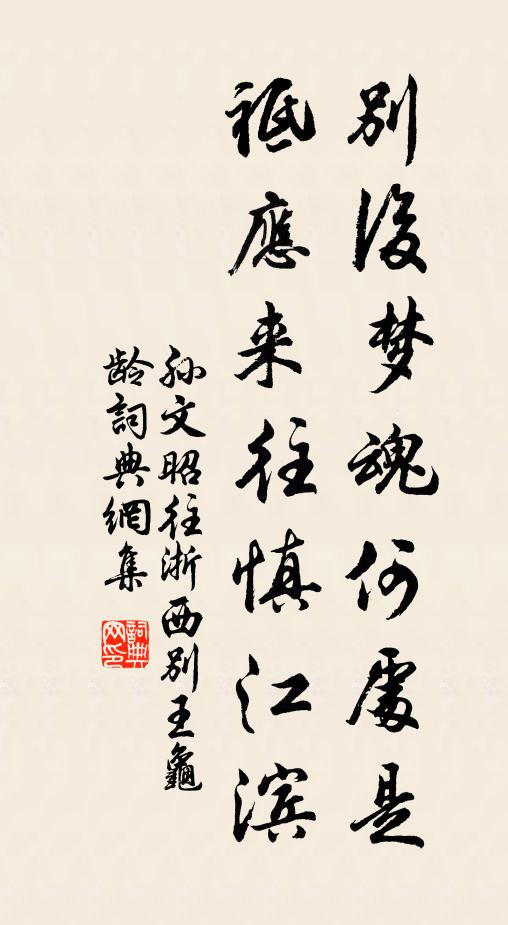 別後梦魂何處是
祗應来往慎江滨
孙文昭往浙西別王龜
龄詞典網集
詞典
网印